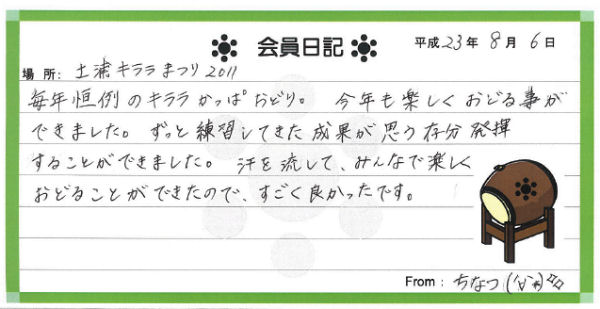 会員日記
平成23年8月6日
場所: 土浦キララまつり2011
毎年恒例のキララかっぱおどり。 今年も楽しくおどる事が
できました。ずっと練習してきた成果が思う存分発揮
することができました。 汗を流して、みんなで楽しく
おどることができたので、すごく良かったです。
From: ちなつ